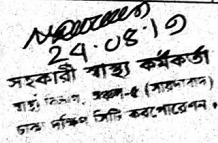 24.08.17
সহকারী স্বাস্থ্য কর্মকর্তা
স্বাস্থ্য বিভাগ, অঞ্চল-৫ (সায়েদাবাদ)
ঢাকা দক্ষিণ সিটি করপোরেশন।